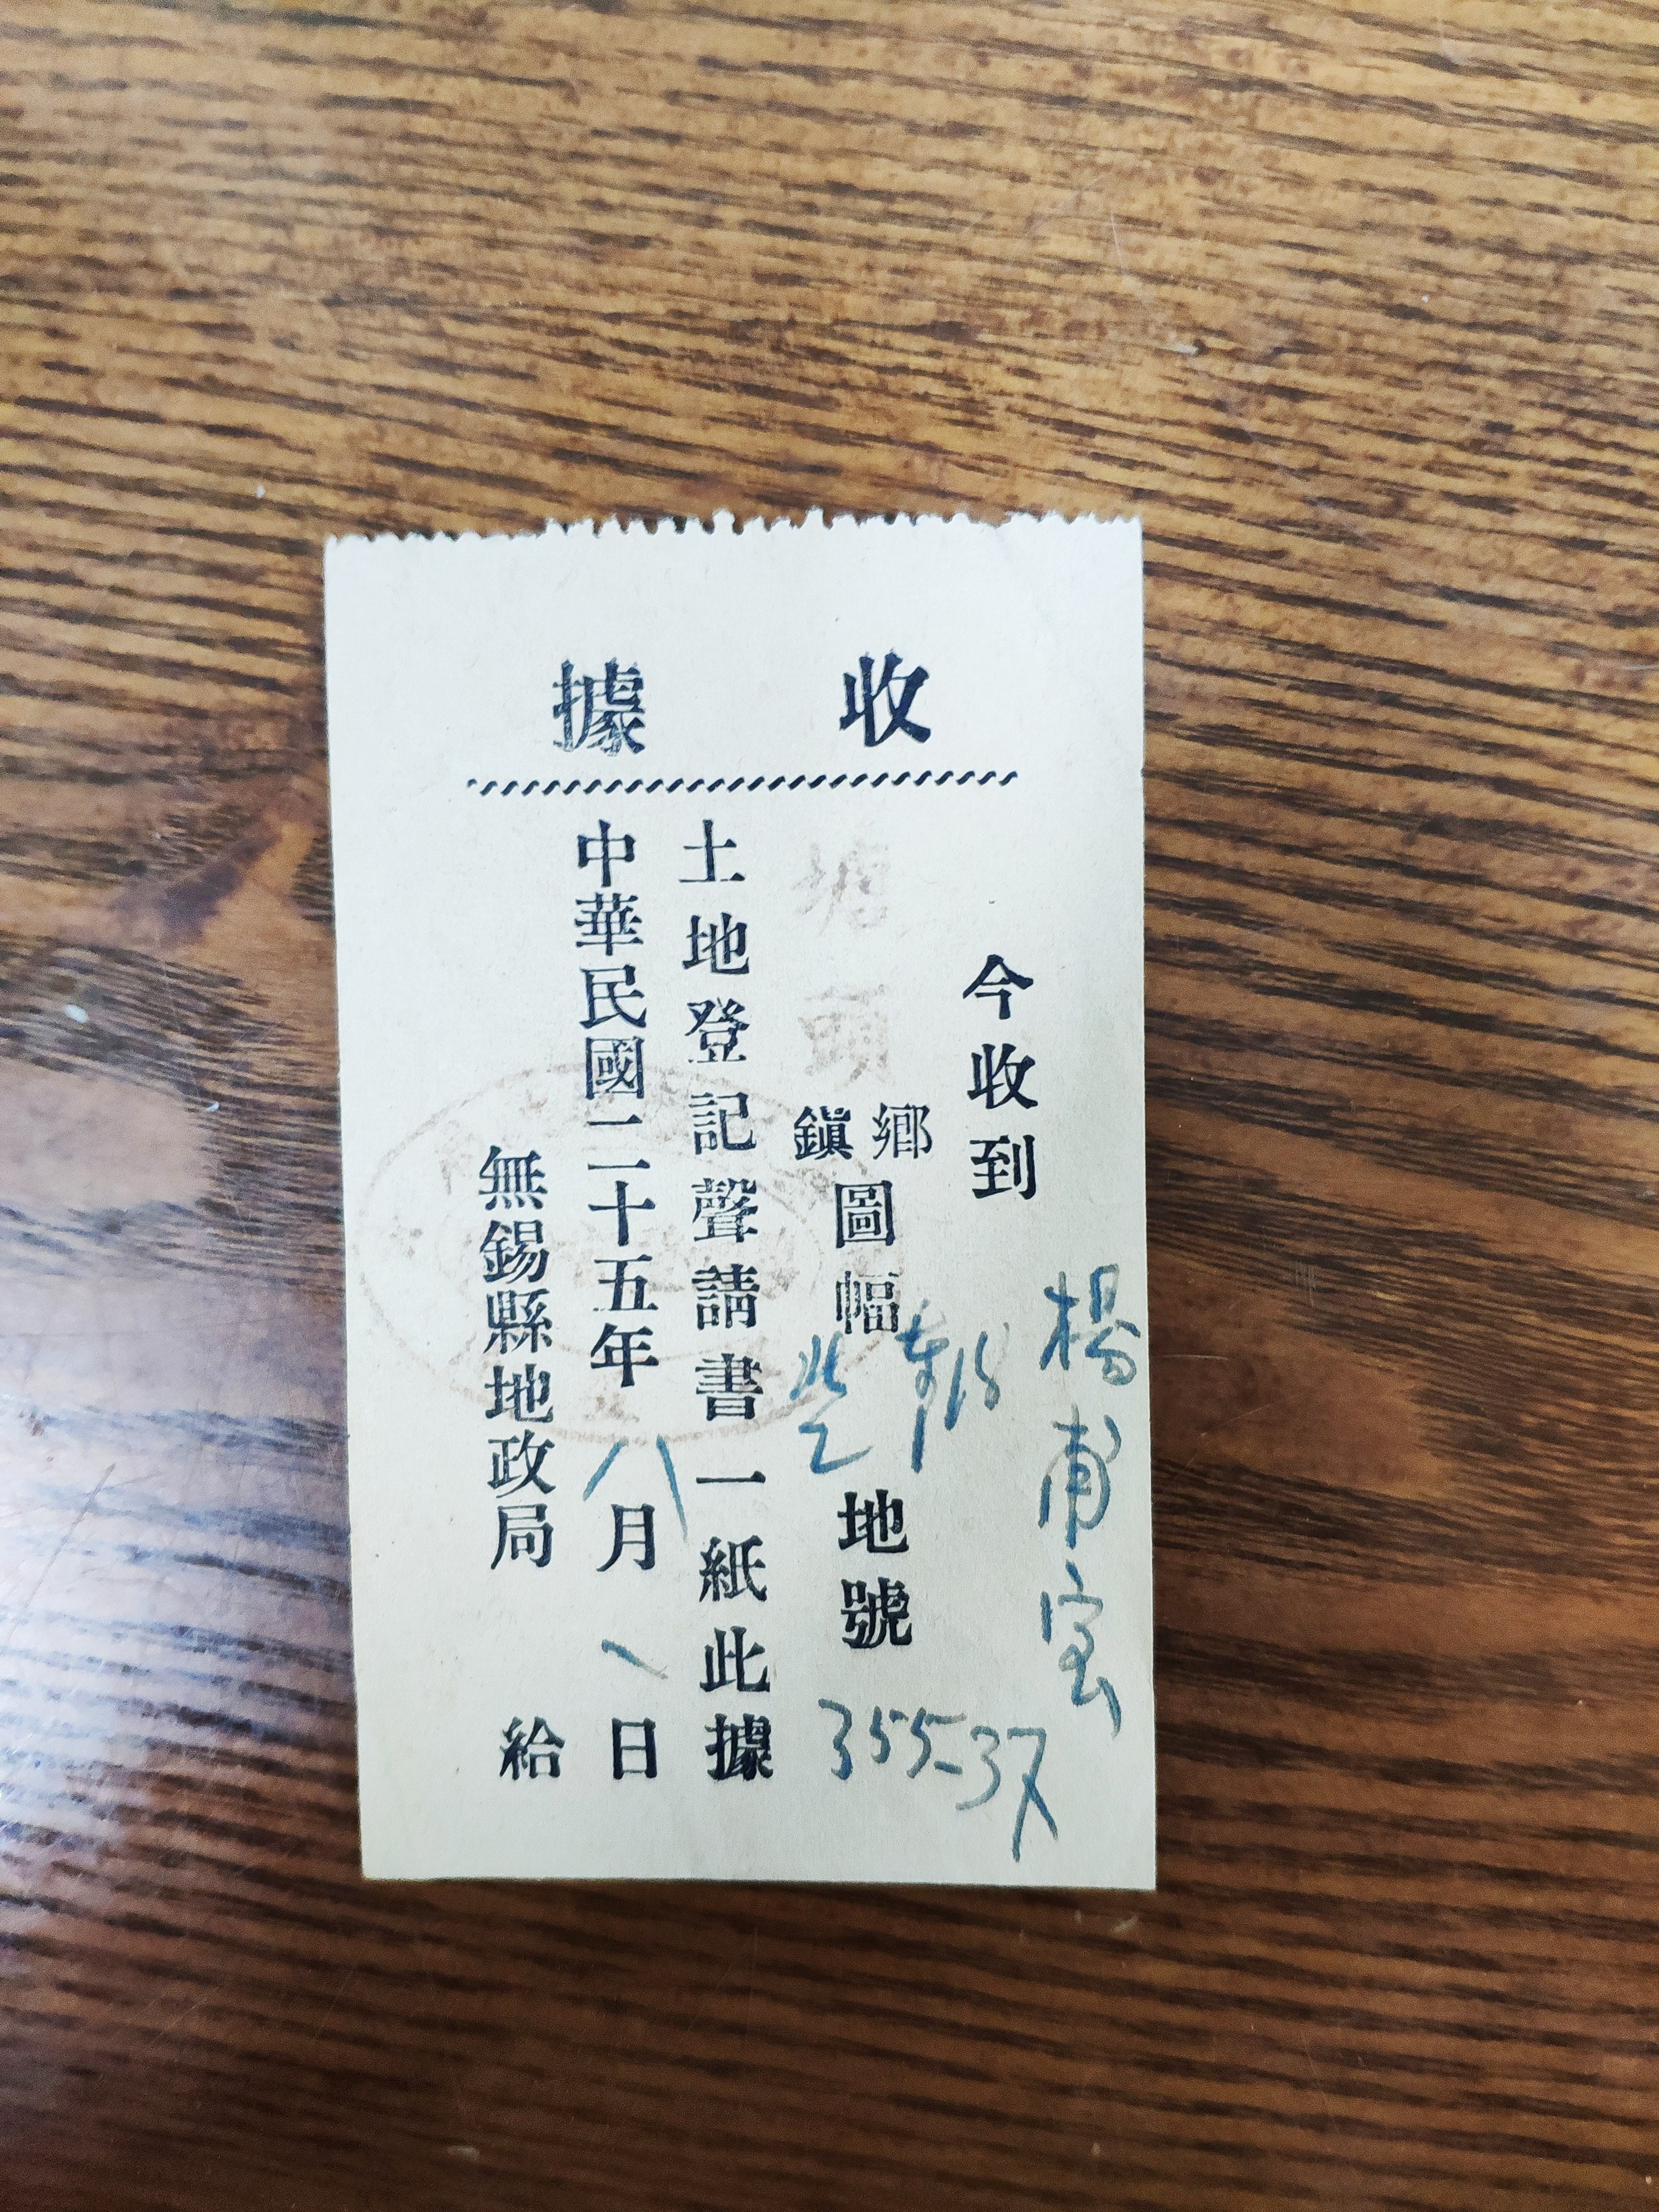 收據
今收到 楊甫雲
塘頭 鄉鎮圖幅 東15 北2 地號 355-37
土地登記聲請書一紙此據
中華民國二十五年八月 日
無錫縣地政局 給